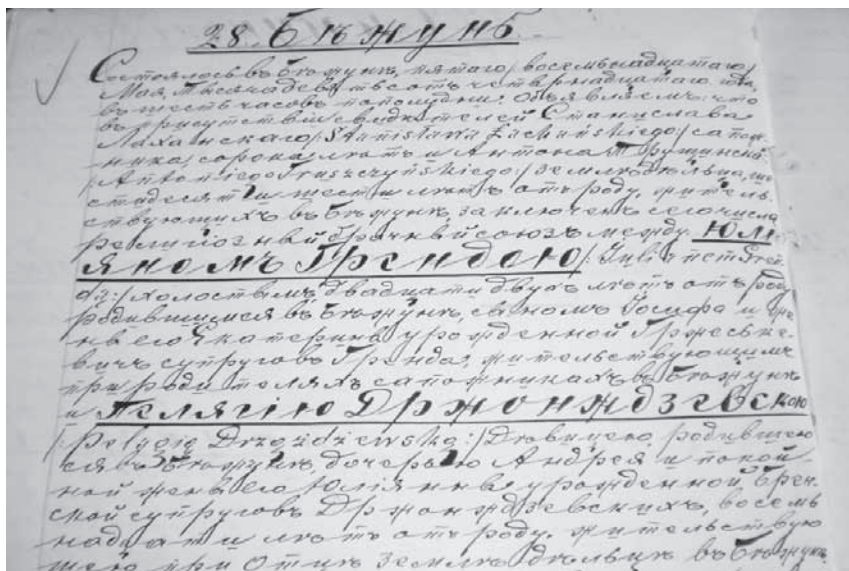 28. Бѣжунь
Состоялось въ Бѣжунѣ, пятаго /восемьнадцатаго/
Мая, тысяча девятьсотъ четырнадцатаго года,
въ шесть часовъ пополудни. Объявляемъ, что
въ присутствіи свидѣтелей Станислава
Лаханскаго /:Stanisława Łachańskiego:/ сапож-
ника, сорока лѣтъ и Антона Трущинска-
/:Antoniego Truszczyńskiego:/ земледѣльца, ше-
стидесяти шести лѣтъ отъ роду, житель-
ствующихъ въ Бѣжунѣ, заключенъ сего числа
религіозный брачный союзъ между Юлі-
яномъ Грендою /:Julianem Gren-
dą:/ холостымъ, двадцати двухъ лѣтъ отъ роду
родившимся въ Бѣжунѣ, сыномъ Іосифа и же-
ны его Екатерины урожденной Гржеське-
вичъ супруговъ Гренда, жительствующимъ
при родителяхъ сапожникахъ въ Бѣжунѣ
и Пелягією Држонждзевскою
/:Pelagią Drżądżewską:/ Дѣвицею, родившею-
ся въ Бѣжунѣ, дочерью Андрея и покой-
ной жены его Юліянны урожденной Брен-
ской супруговъ Држонждзевскихъ, восемь-
надцати лѣтъ отъ роду, жительствую-
щею при Отцѣ земледѣльцѣ въ Бѣжунѣ.